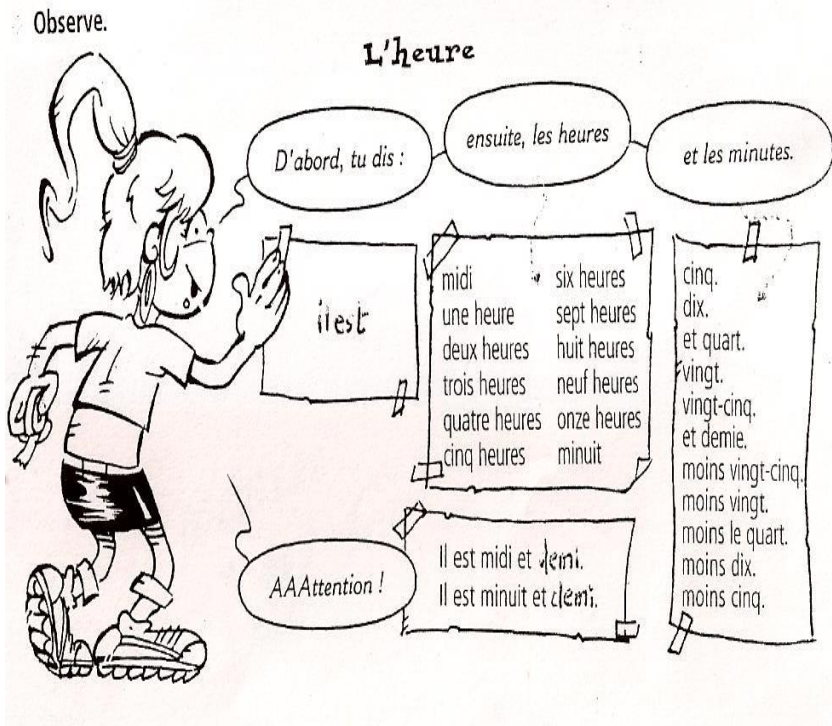 Observe.
L'heure
D'abord, tu dis :
ensuite, les heures
et les minutes.
il est
midi
une heure
deux heures
trois heures
quatre heures
cinq heures
six heures
sept heures
huit heures
neuf heures
onze heures
minuit
cinq.
dix.
et quart.
vingt.
vingt-cinq.
et demie.
moins vingt-cinq.
moins vingt.
moins le quart.
moins dix.
moins cinq.
AAAttention !
Il est midi et demi.
Il est minuit et demi.